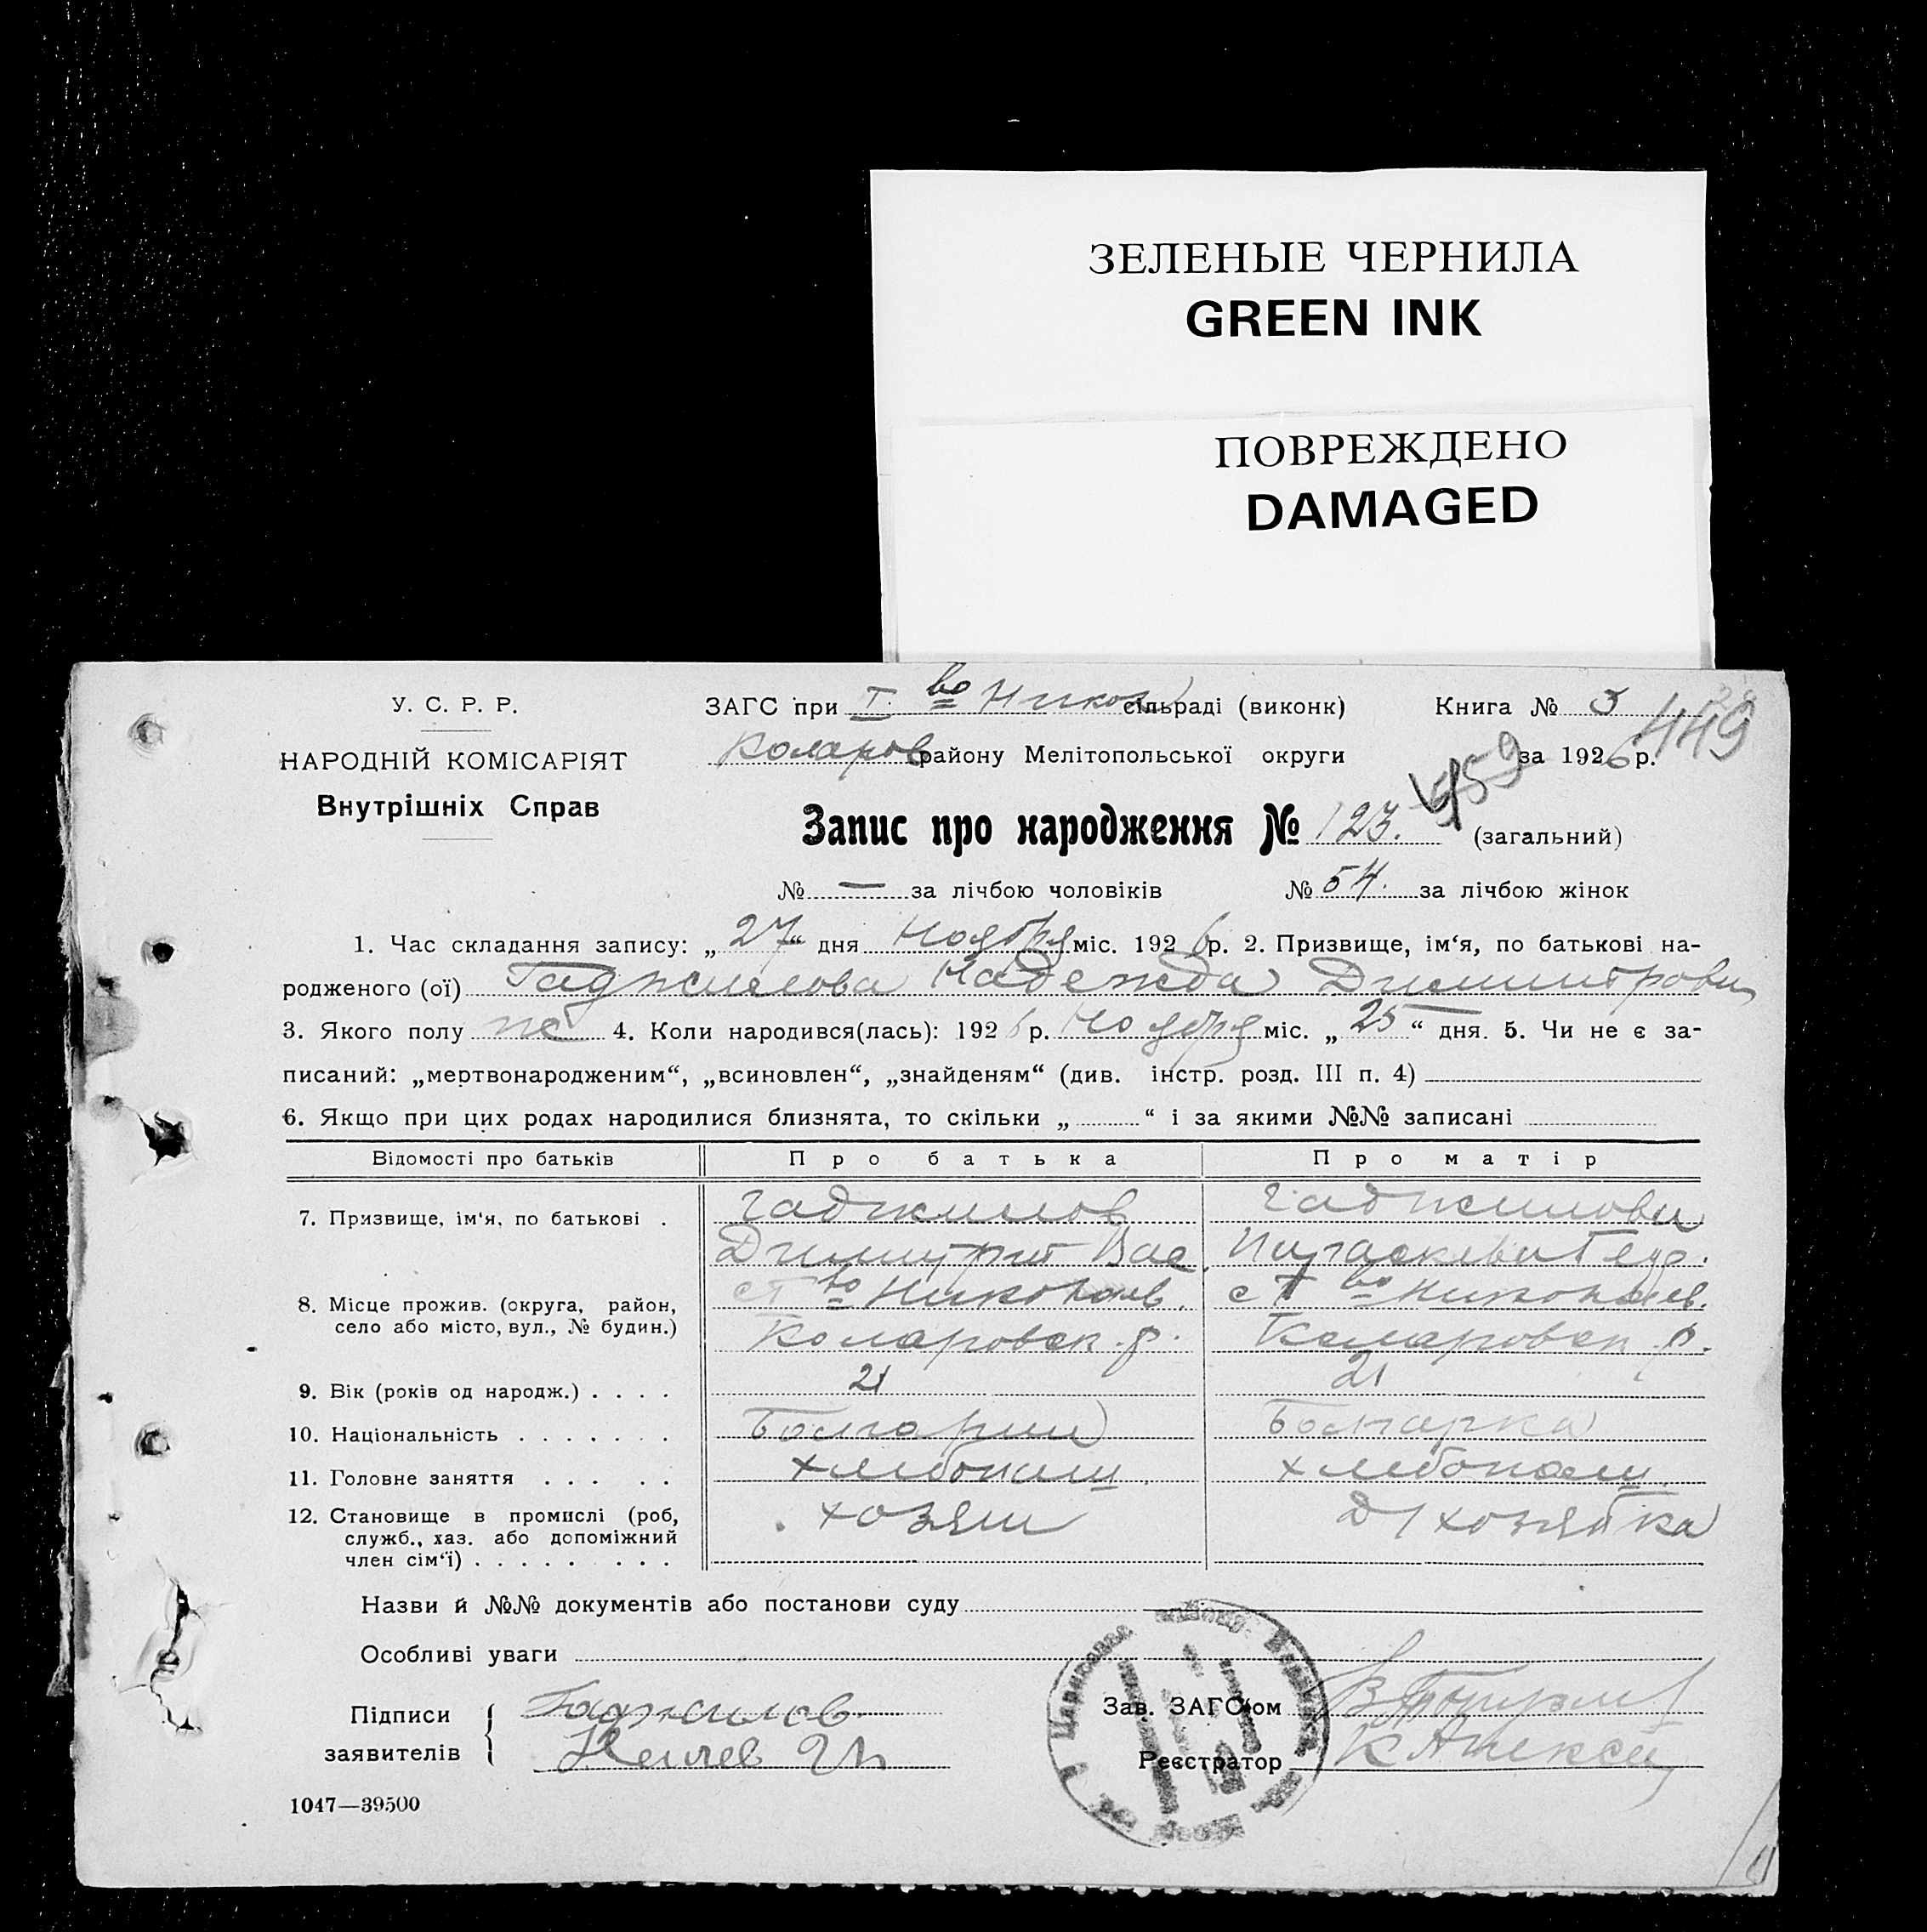 ЗЕЛЕНЫЕ ЧЕРНИЛА
GREEN INK
ПОВРЕЖДЕНО
DAMAGED
У. С. Р. Р. ЗАГС при І во Никол сільраді (виконк) Книга № 3
449
НАРОДНІЙ КОМІСАРІЯТ Коларов району Мелітопольської округи за 1926 р.
Внутрішніх Справ
Запис про народження № 123. (загальний)
№ — за лічбою чоловіків № 54. за лічбою жінок
1. Час складання запису: „27“ дня Ноября міс. 1926 р. 2. Призвище, ім‘я, по батькові на-
родженого (ої) Гаджилова Надежда Димитровн
3. Якого полу 4. Коли народився(лась): 1926 р. Ноября міс. „25“ дня. 5. Чи не є за-
писаний: „мертвонародженим“, „всиновлен“, „знайденям“ (див. інстр. розд. III п. 4)
6. Якщо при цих родах народилися близнята, то скільки „ “ і за якими №№ записані
Відомості про батьків Про батька Про матір
7. Призвище, ім‘я, по батькові . Гаджилов Гаджилова
Димитрий Вас. Параскева
8. Місце прожив. (округа, район, с І во Николаев. с І во Николаев.
село або місто, вул., № будин.) Коларовск. р. Коларовск. р.
9. Вік (років од народж.) . . . . 21 21
10. Національність . . . . . . . Болгарин Болгарка
11. Головне заняття . . . . . хлебопаш. хлебопаш.
12. Становище в промислі (роб, хозяин д/хозяйка
служб., хаз. або допоміжний
член сім‘ї) . . . . . . . . .
Назви й №№ документів або постанови суду
Особливі уваги
Підписи Гаджилов Зав. ЗАГС‘ом
заявителів Реєстратор
1047—39500